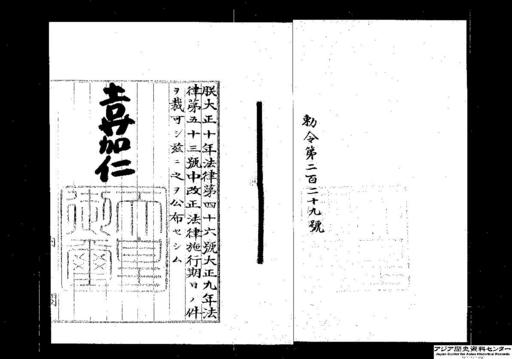 勅令第二百二十九號
朕大正十年法律第四十六號大正九年法
律第五十三號中改正法律施行期日ノ件
ヲ裁可シ茲ニ之ヲ公布セシム
嘉仁
天皇
御璽
アジア歴史資料センター
Japan Center for Asian Historical Records